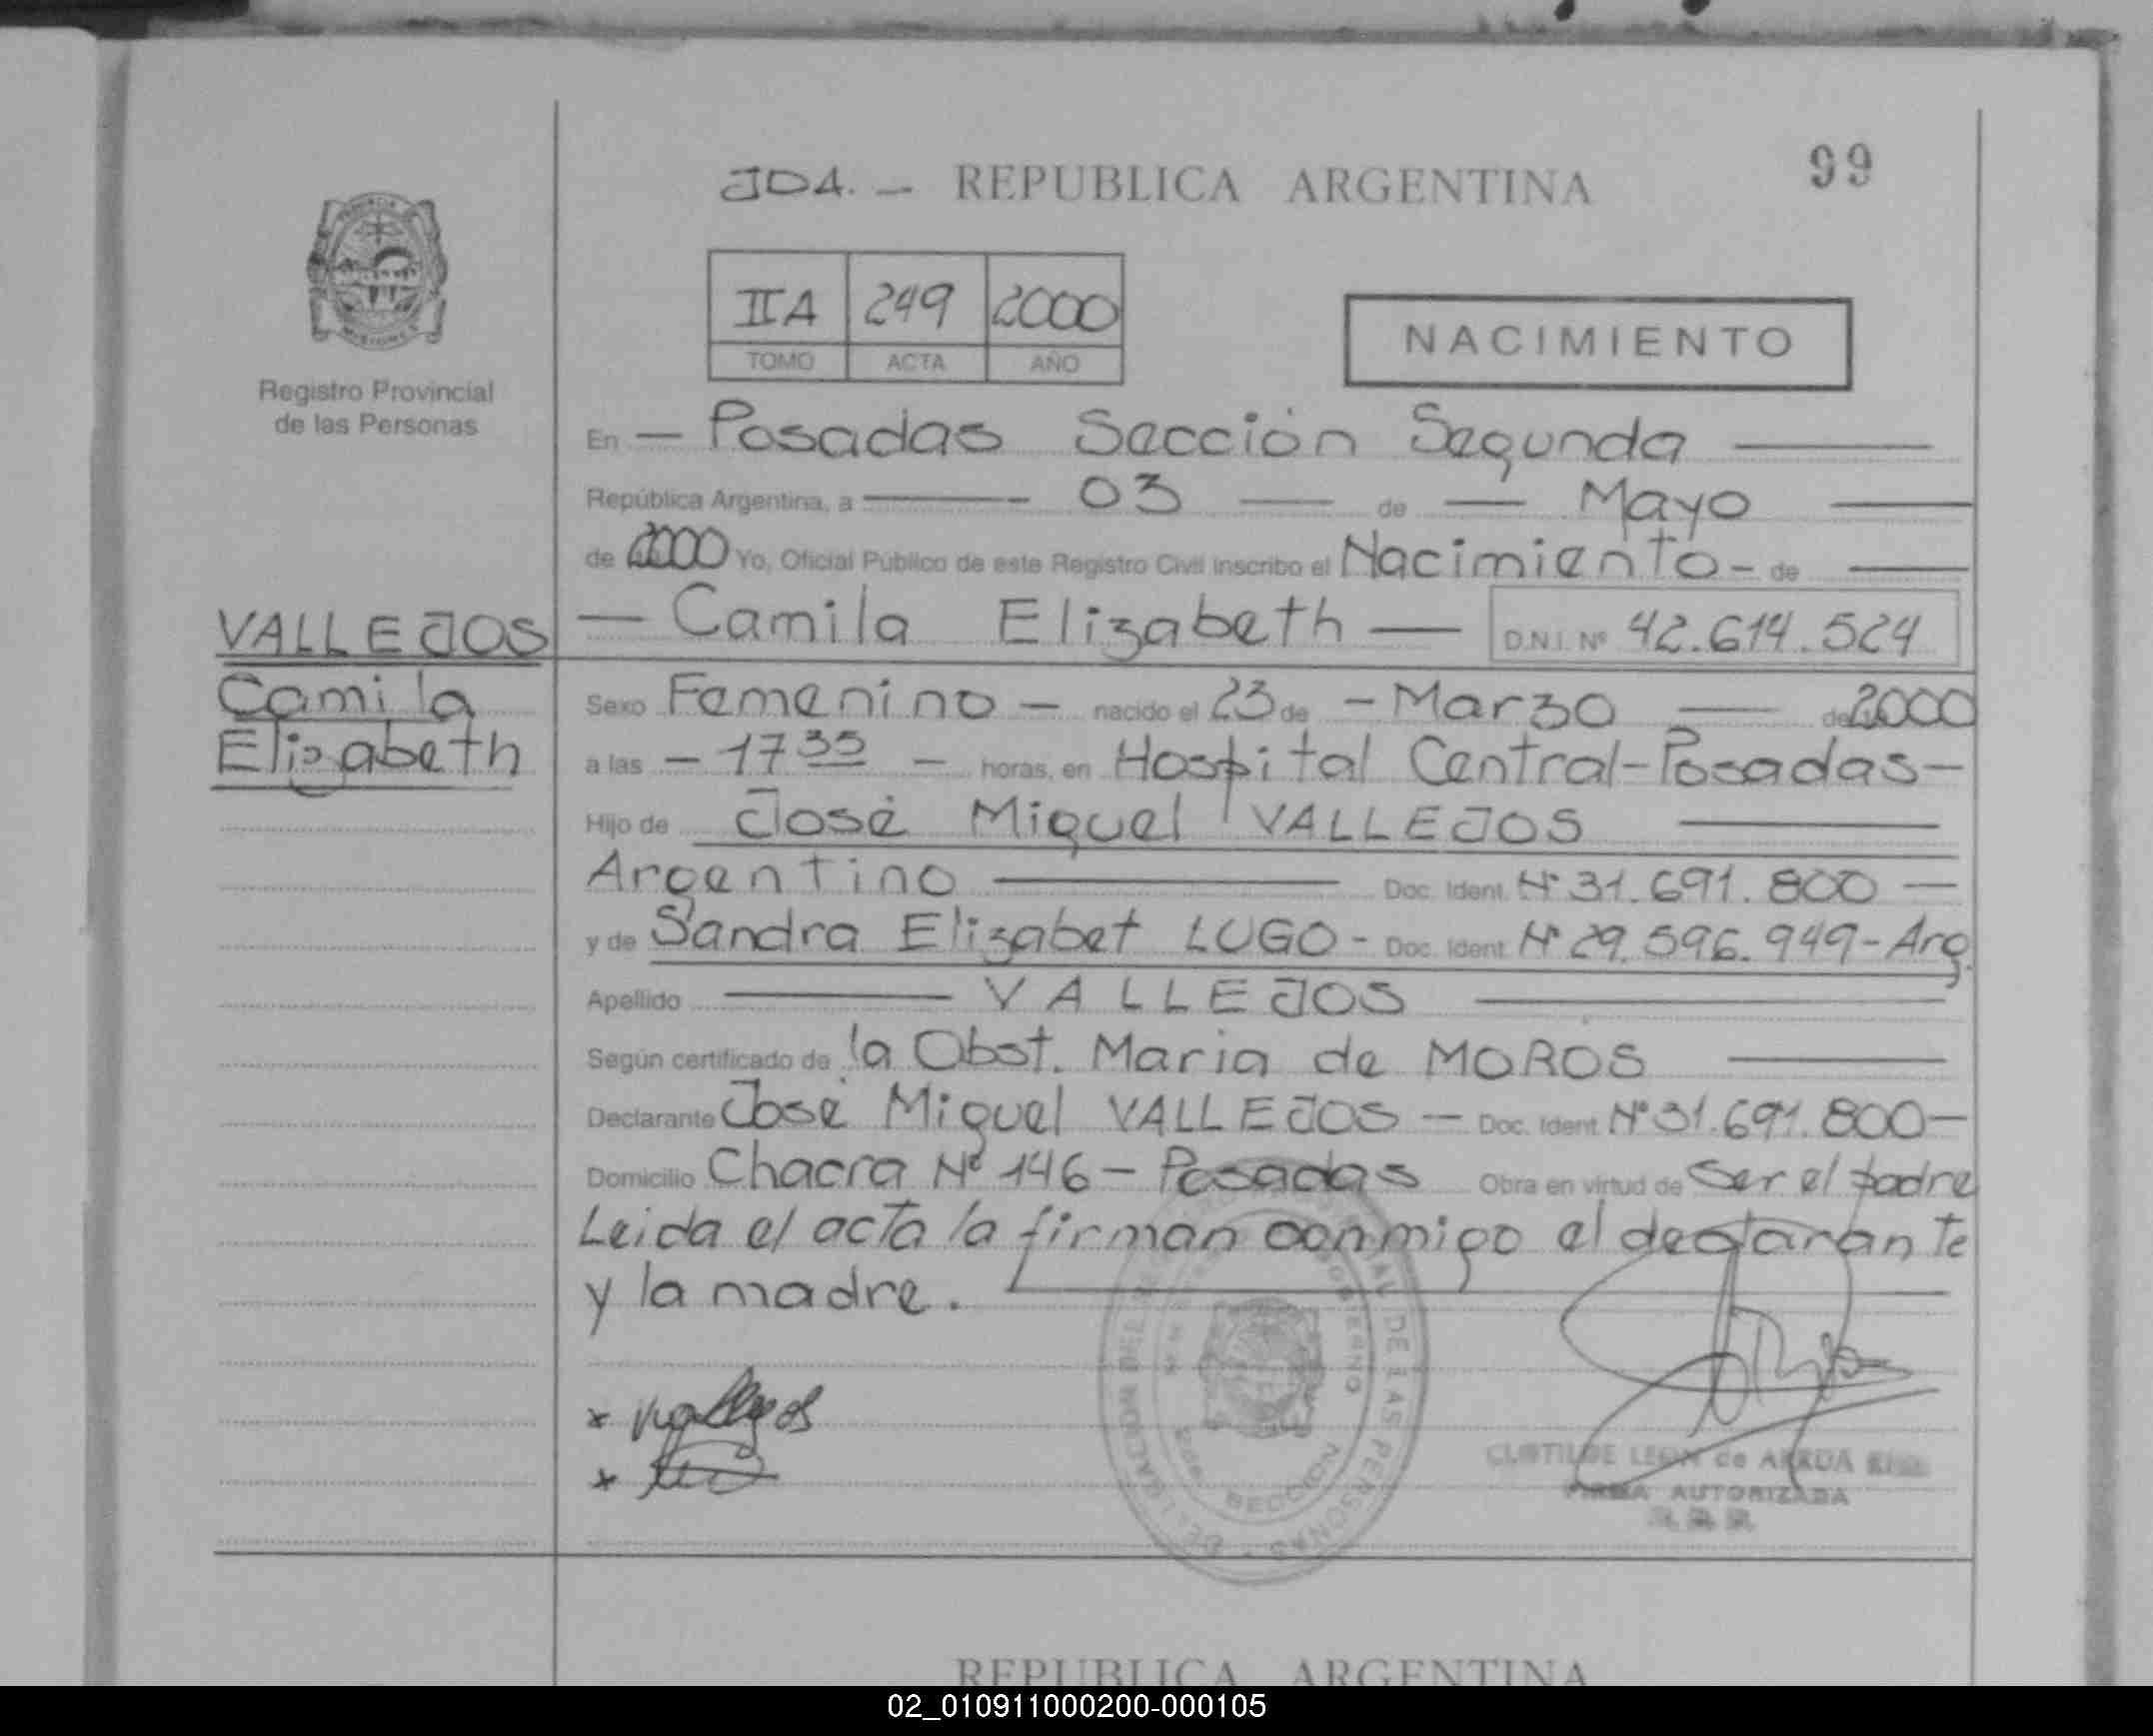 JDA. - REPUBLICA ARGENTINA 99
IIA 249 2000
TOMO ACTA AÑO
NACIMIENTO
Registro Provincial
de las Personas
En — Posadas Sección Segunda —
República Argentina, a — 03 — de — Mayo —
de 2000 Yo, Oficial Público de este Registro Civil inscribo el Nacimiento - de —
VALLEJOS
Camila
Elizabeth
— Camila Elizabeth — D.N.I. Nº 42.614.524
Sexo Femenino — nacido el 23 de - Marzo — de 2000
a las - 17 35 - horas, en Hospital Central-Posadas-
Hijo de José Miguel VALLEJOS —
Argentino — Doc. Ident. Nº 31.691.800 —
y de Sandra Elizabet LUGO - Doc. Ident. Nº 29.596.949-Arg.
Apellido — VALLEJOS —
Según certificado de la Obst. Maria de MOROS —
Declarante José Miguel VALLEJOS — Doc. Ident. Nº 31.691.800—
Domicilio Chacra Nº 146 - Posadas Obra en virtud de Ser el padre
Leida el acta la firman conmigo el declarante
y la madre.
x Vallejos
x
DE LAS PERSONAS
SECCION
CLOTILDE LEON de ARRUA
FIRMA AUTORIZADA
REPUBLICA ARGENTINA
02_010911000200-000105